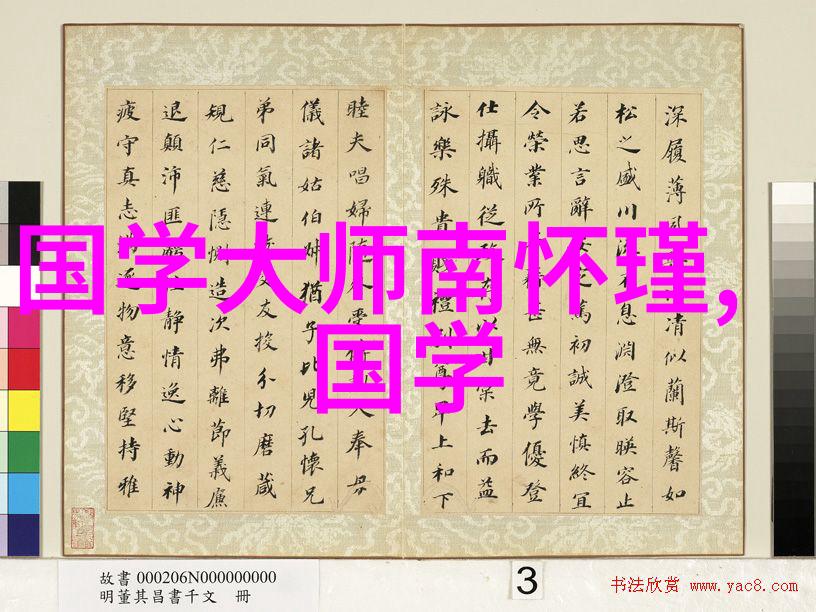 深履薄清似蘭斯馨如
松之盛川流不息淵澄取暎容止
若思言辭篤初誠美慎終宜
令榮業所甚無竟學優登
仕攝職從以甘棠去而益
詠樂殊貴賤禮別尊卑上和下
睦夫唱婦隨受入奉母
儀諸姑伯叔猶子比兒孔懷兄
弟同氣連交友投分切磨箴
規仁慈隱惻造次弗離節義廉
退顛沛匪虧性靜情逸心動神
疲守真志逐物意移堅持雅
国学大师南怀瑾,
国学
故書 000206N000000000
明董其昌書千文 冊
3
书法欣赏 www.yac8.com